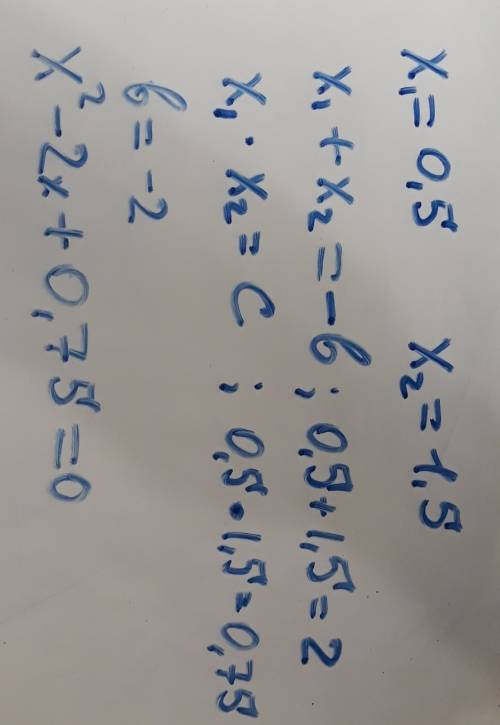 x₁ = 0,5 x₂ = 1,5
x₁ + x₂ = -b ; 0,5 + 1,5 = 2
x₁ · x₂ = c ; 0,5 · 1,5 = 0,75
b = -2
x² - 2x + 0,75 = 0